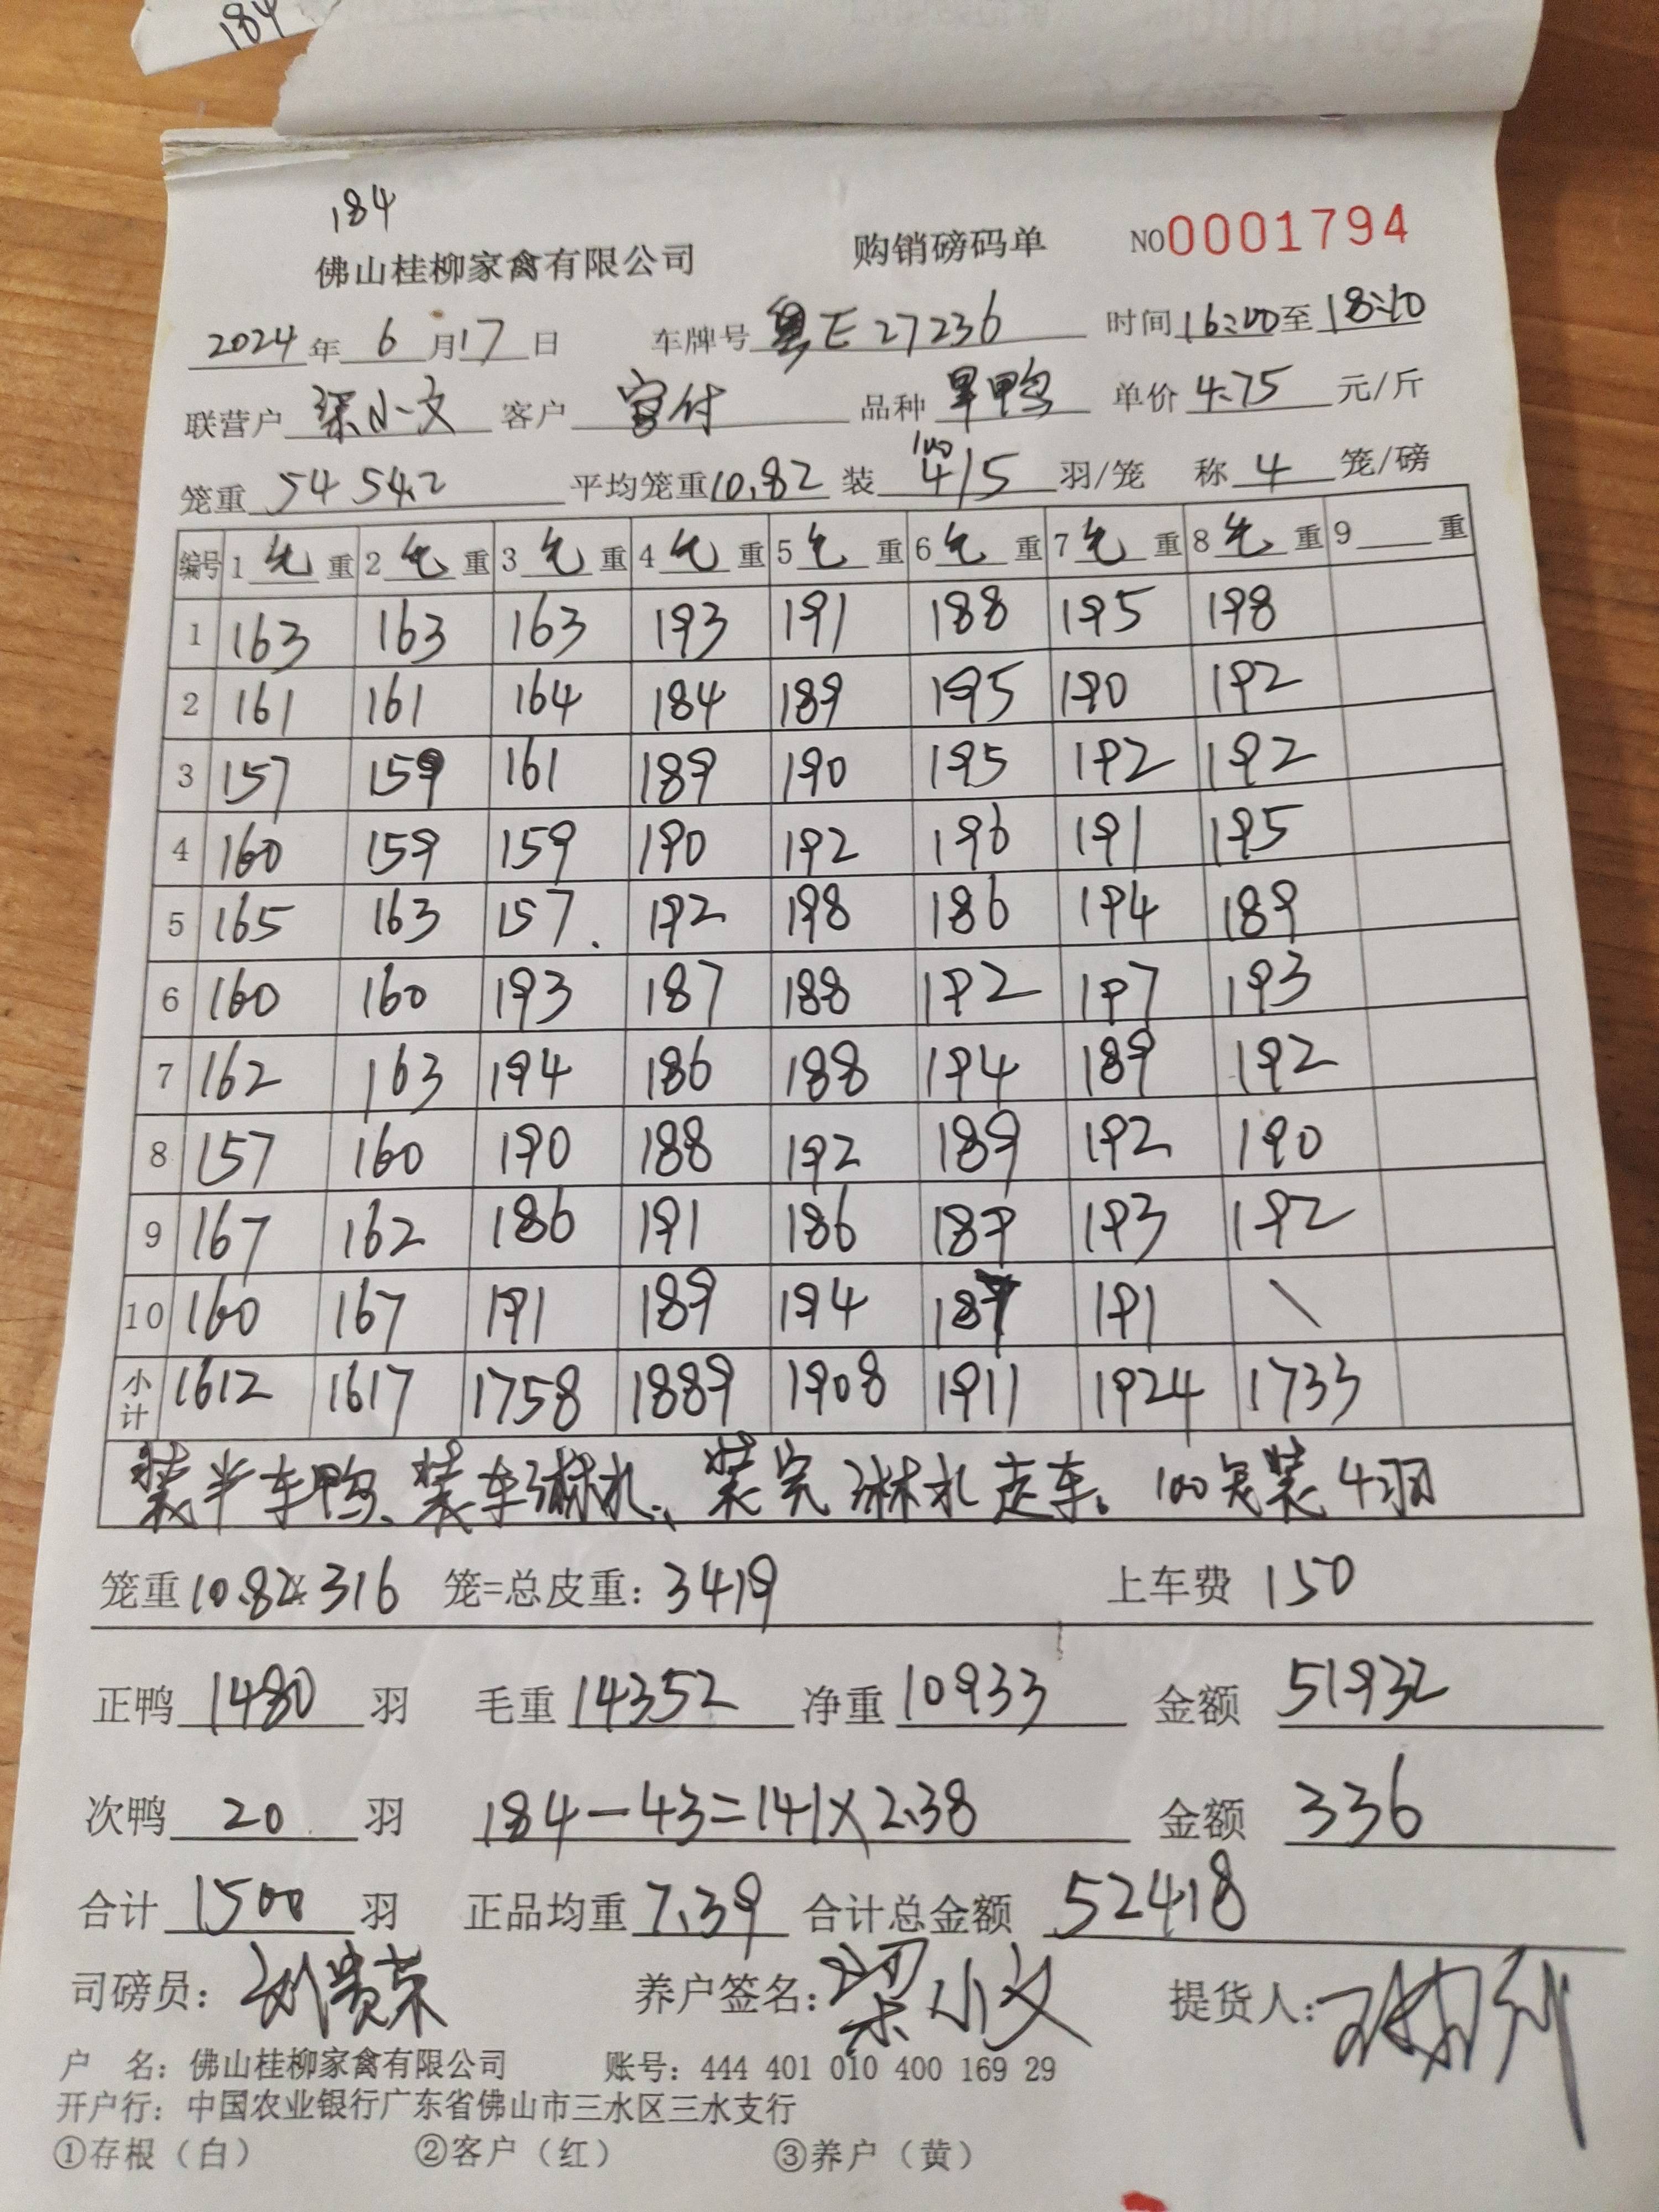 184
184
佛山桂柳家禽有限公司 购销磅码单 NO0001794
2024年6月17日 车牌号粤E27236 时间16:00至18:10
联营户梁小文 客户富付 品种旱鸭 单价4.75元/斤
笼重54 542 平均笼重10.82 装4/5羽/笼 称4笼/磅
100
编号 1毛重 2毛重 3毛重 4毛重 5毛重 6毛重 7毛重 8毛重 9重
1 163 163 163 193 191 188 195 198
2 161 161 164 184 189 195 190 192
3 157 159 161 189 190 195 192 192
4 160 159 159 190 192 196 191 195
5 165 163 157. 192 198 186 194 189
6 160 160 193 187 188 192 197 193
7 162 163 194 186 188 194 189 192
8 157 160 190 188 192 189 192 190
9 167 162 186 191 186 189 193 192
10 160 167 191 189 194 187 191 \
小计 1612 1617 1758 1889 1908 1911 1924 1733
装半车鸭、装车淋水、装完淋水走车。100笼装4羽
笼重10.82×316笼=总皮重:3419 上车费150
正鸭1480羽 毛重14352 净重10933 金额51932
次鸭20羽 184-43=141×2.38 金额336
合计1500羽 正品均重7.39 合计总金额52418
司磅员:刘贵荣 养户签名:梁小文 提货人:
户 名:佛山桂柳家禽有限公司 账号:444 401 010 400 169 29
开户行:中国农业银行广东省佛山市三水区三水支行
①存根(白) ②客户(红) ③养户(黄)